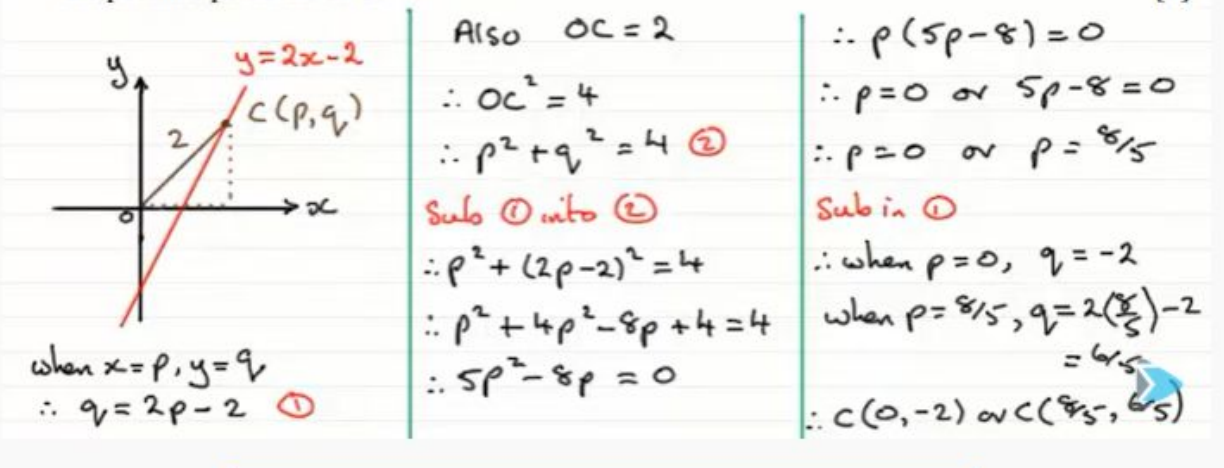 y = 2x - 2
y
C(p, q)
2
O
x
when x = p, y = q
∴ q = 2p - 2 ①
Also OC = 2
∴ OC² = 4
∴ p² + q² = 4 ②
Sub ① into ②
∴ p² + (2p-2)² = 4
∴ p² + 4p² - 8p + 4 = 4
∴ 5p² - 8p = 0
∴ p(5p - 8) = 0
∴ p = 0 or 5p - 8 = 0
∴ p = 0 or p = 8/5
Sub in ①
∴ when p = 0, q = -2
when p = 8/5, q = 2(8/5) - 2
= 6/5
∴ C(0, -2) or C(8/5, 6/5)